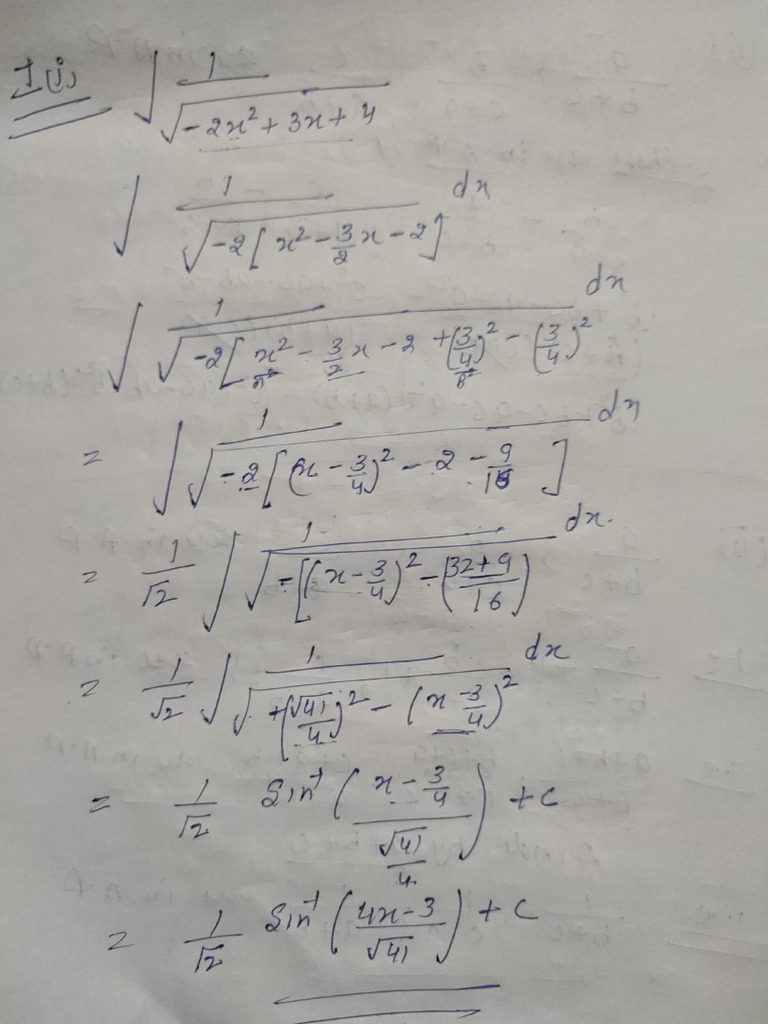 1(i) ∫ 1/√(-2x² + 3x + 4)
∫ 1/√(-2[x² - 3/2 x - 2]) dx
∫ 1/√(-2[x² - 3/2 x - 2 + (3/4)² - (3/4)²) dx
a² b²
= ∫ 1/√(-2[(x - 3/4)² - 2 - 9/16]) dx
= 1/√2 ∫ 1/√(-[(x - 3/4)² - (32+9/16)) dx.
= 1/√2 ∫ 1/√(+(√41/4)² - (x - 3/4)²) dx
= 1/√2 Sin⁻¹((x - 3/4)/(√41/4)) + c
= 1/√2 Sin⁻¹((4x - 3)/√41) + c